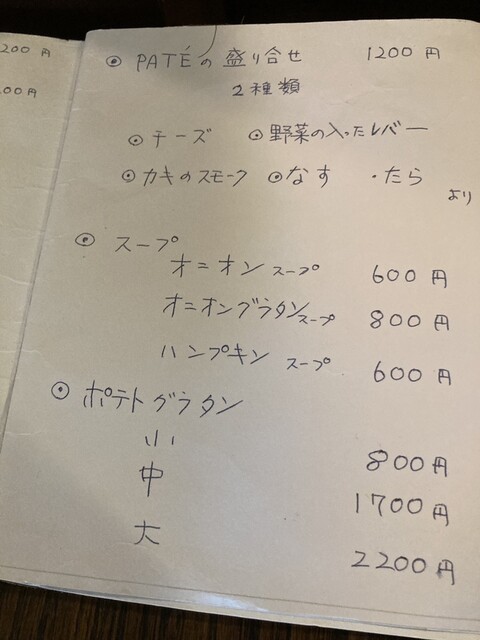 200円
00円
⦿ PATÉの盛り合せ 1200円
2種類
⦿ チーズ ⦿ 野菜の入ったレバー
⦿ カキのスモーク ⦿ なす ・たら
より
⦿ スープ
オニオンスープ 600円
オニオングラタンスープ 800円
ハンプキンスープ 600円
⦿ ポテトグラタン
小 800円
中 1700円
大 2200円